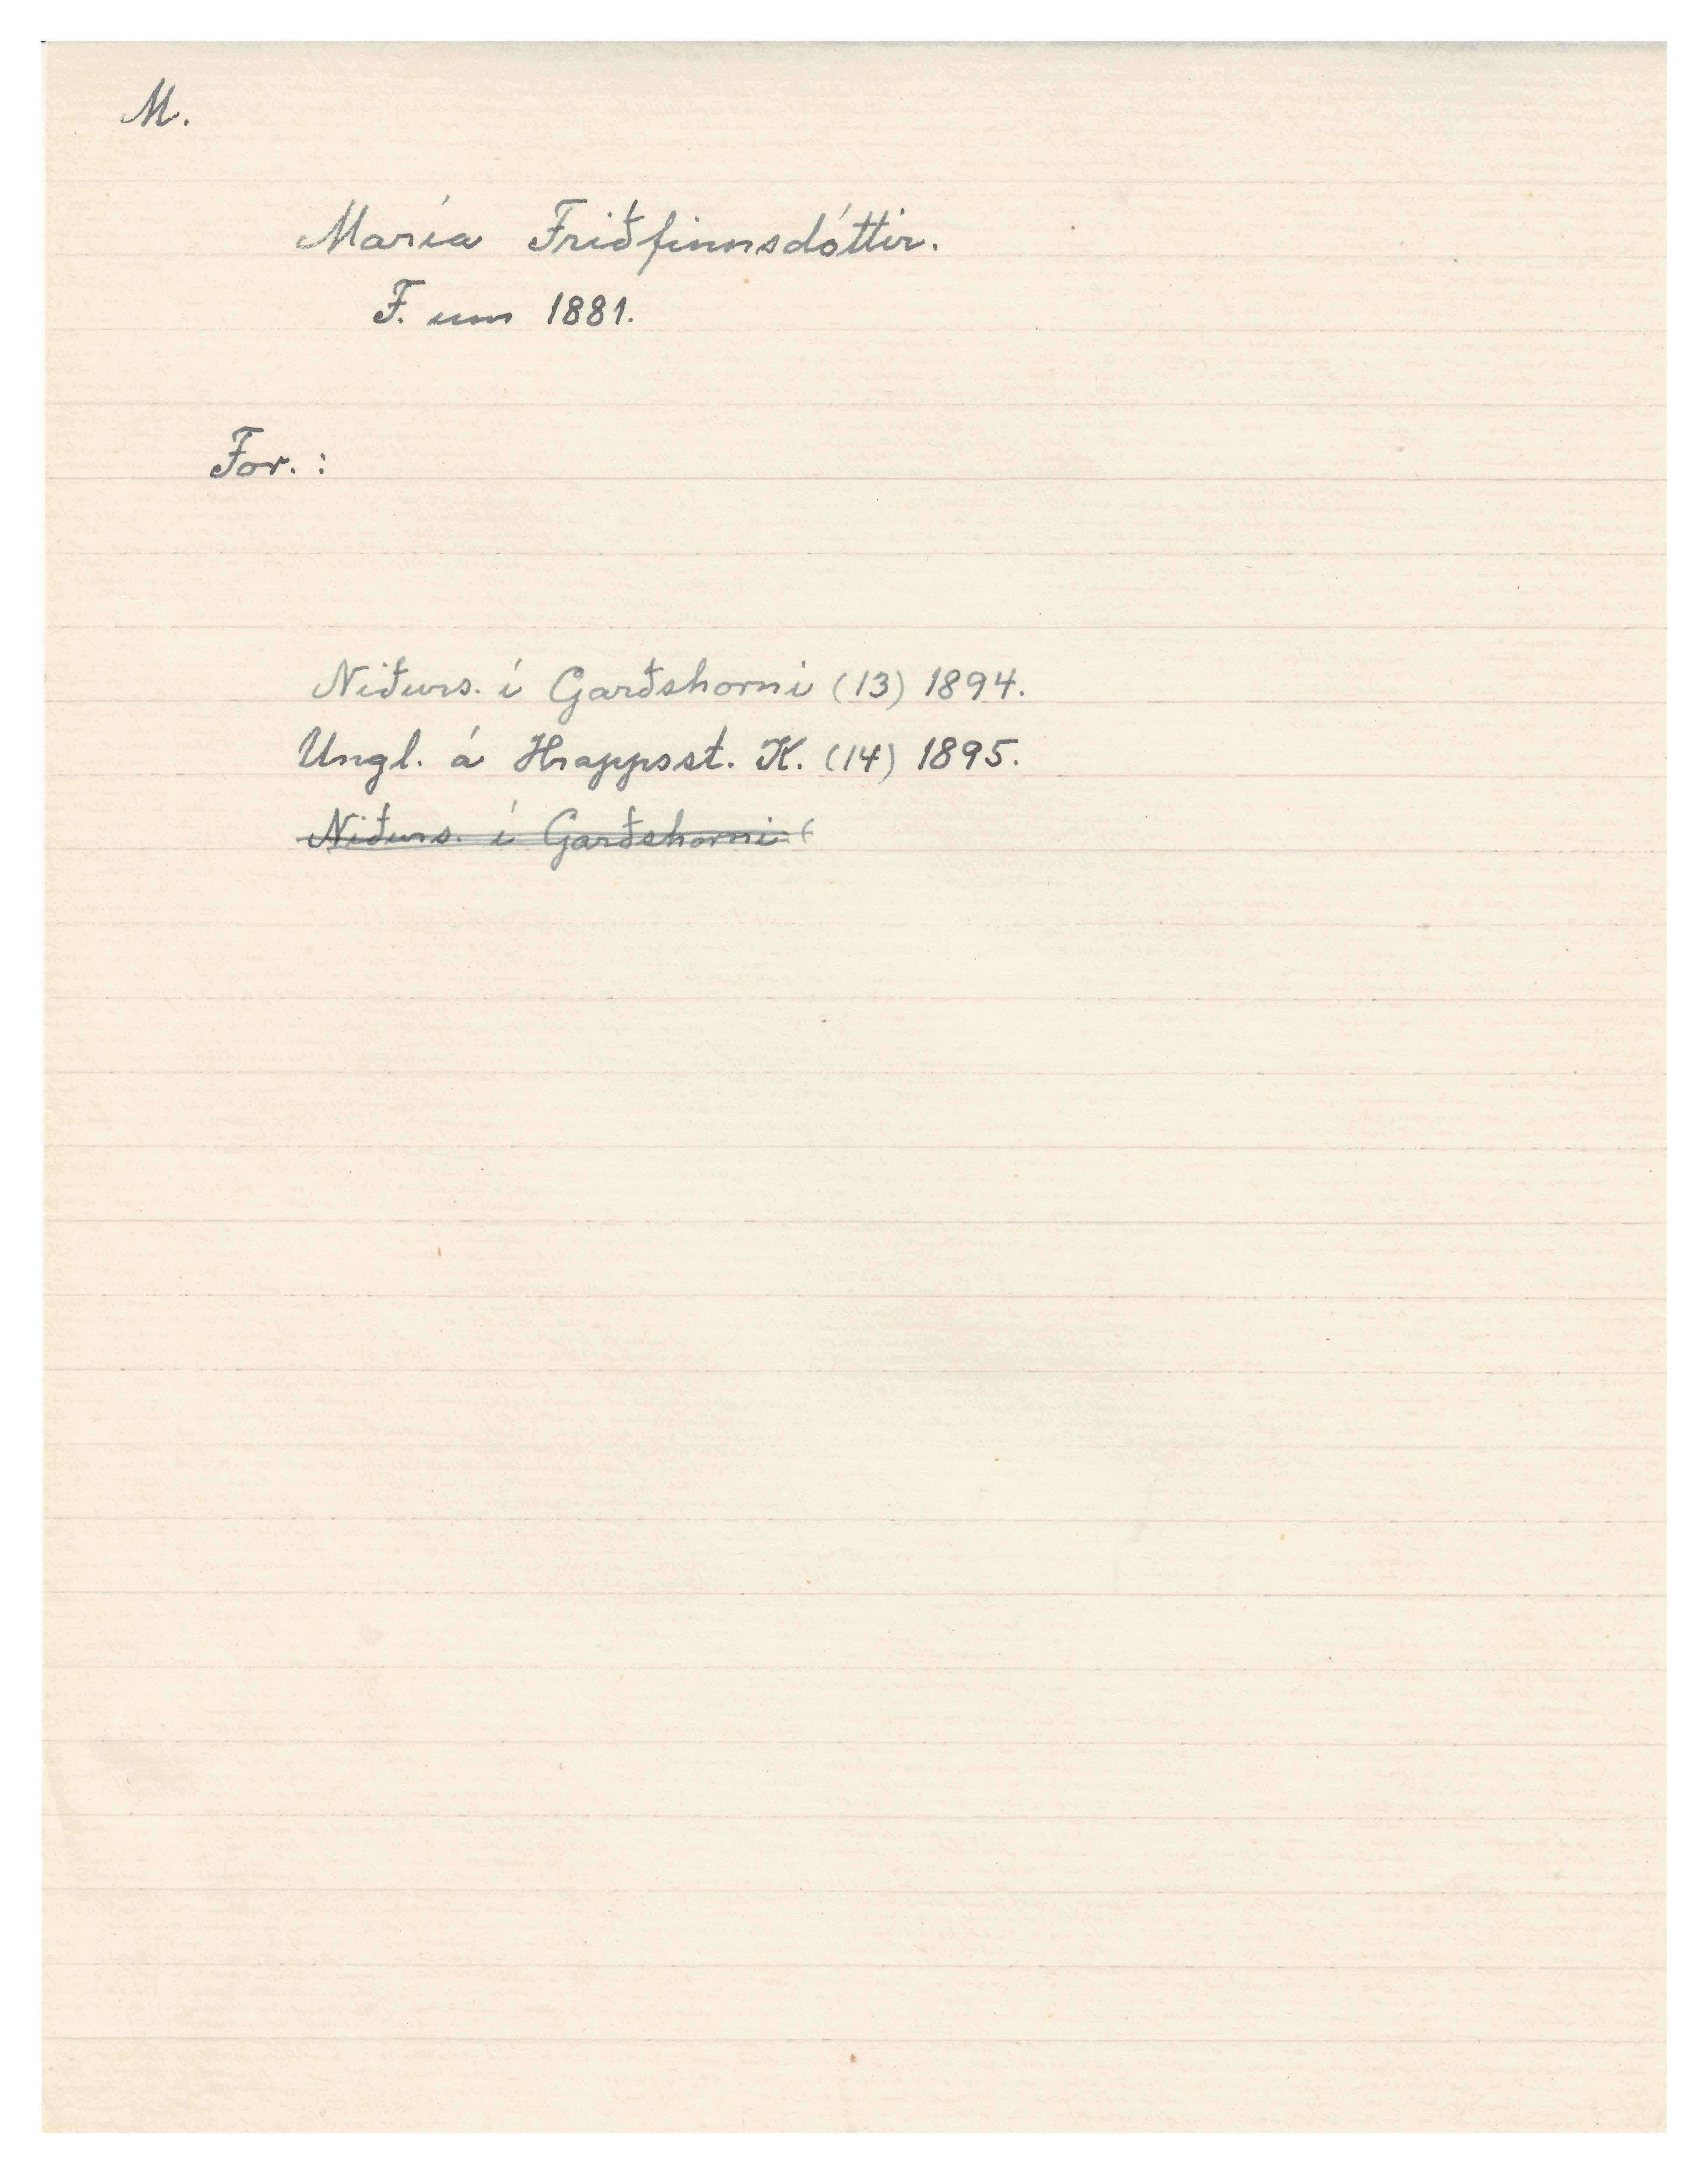 M.
María Friðfinnsdóttir.
F. um 1881.
For. :
Niðurs. í Garðshorni (13) 1894.
Ungl. á Hrappsst. K. (14) 1895.
Niðurs. í Garðshorni (